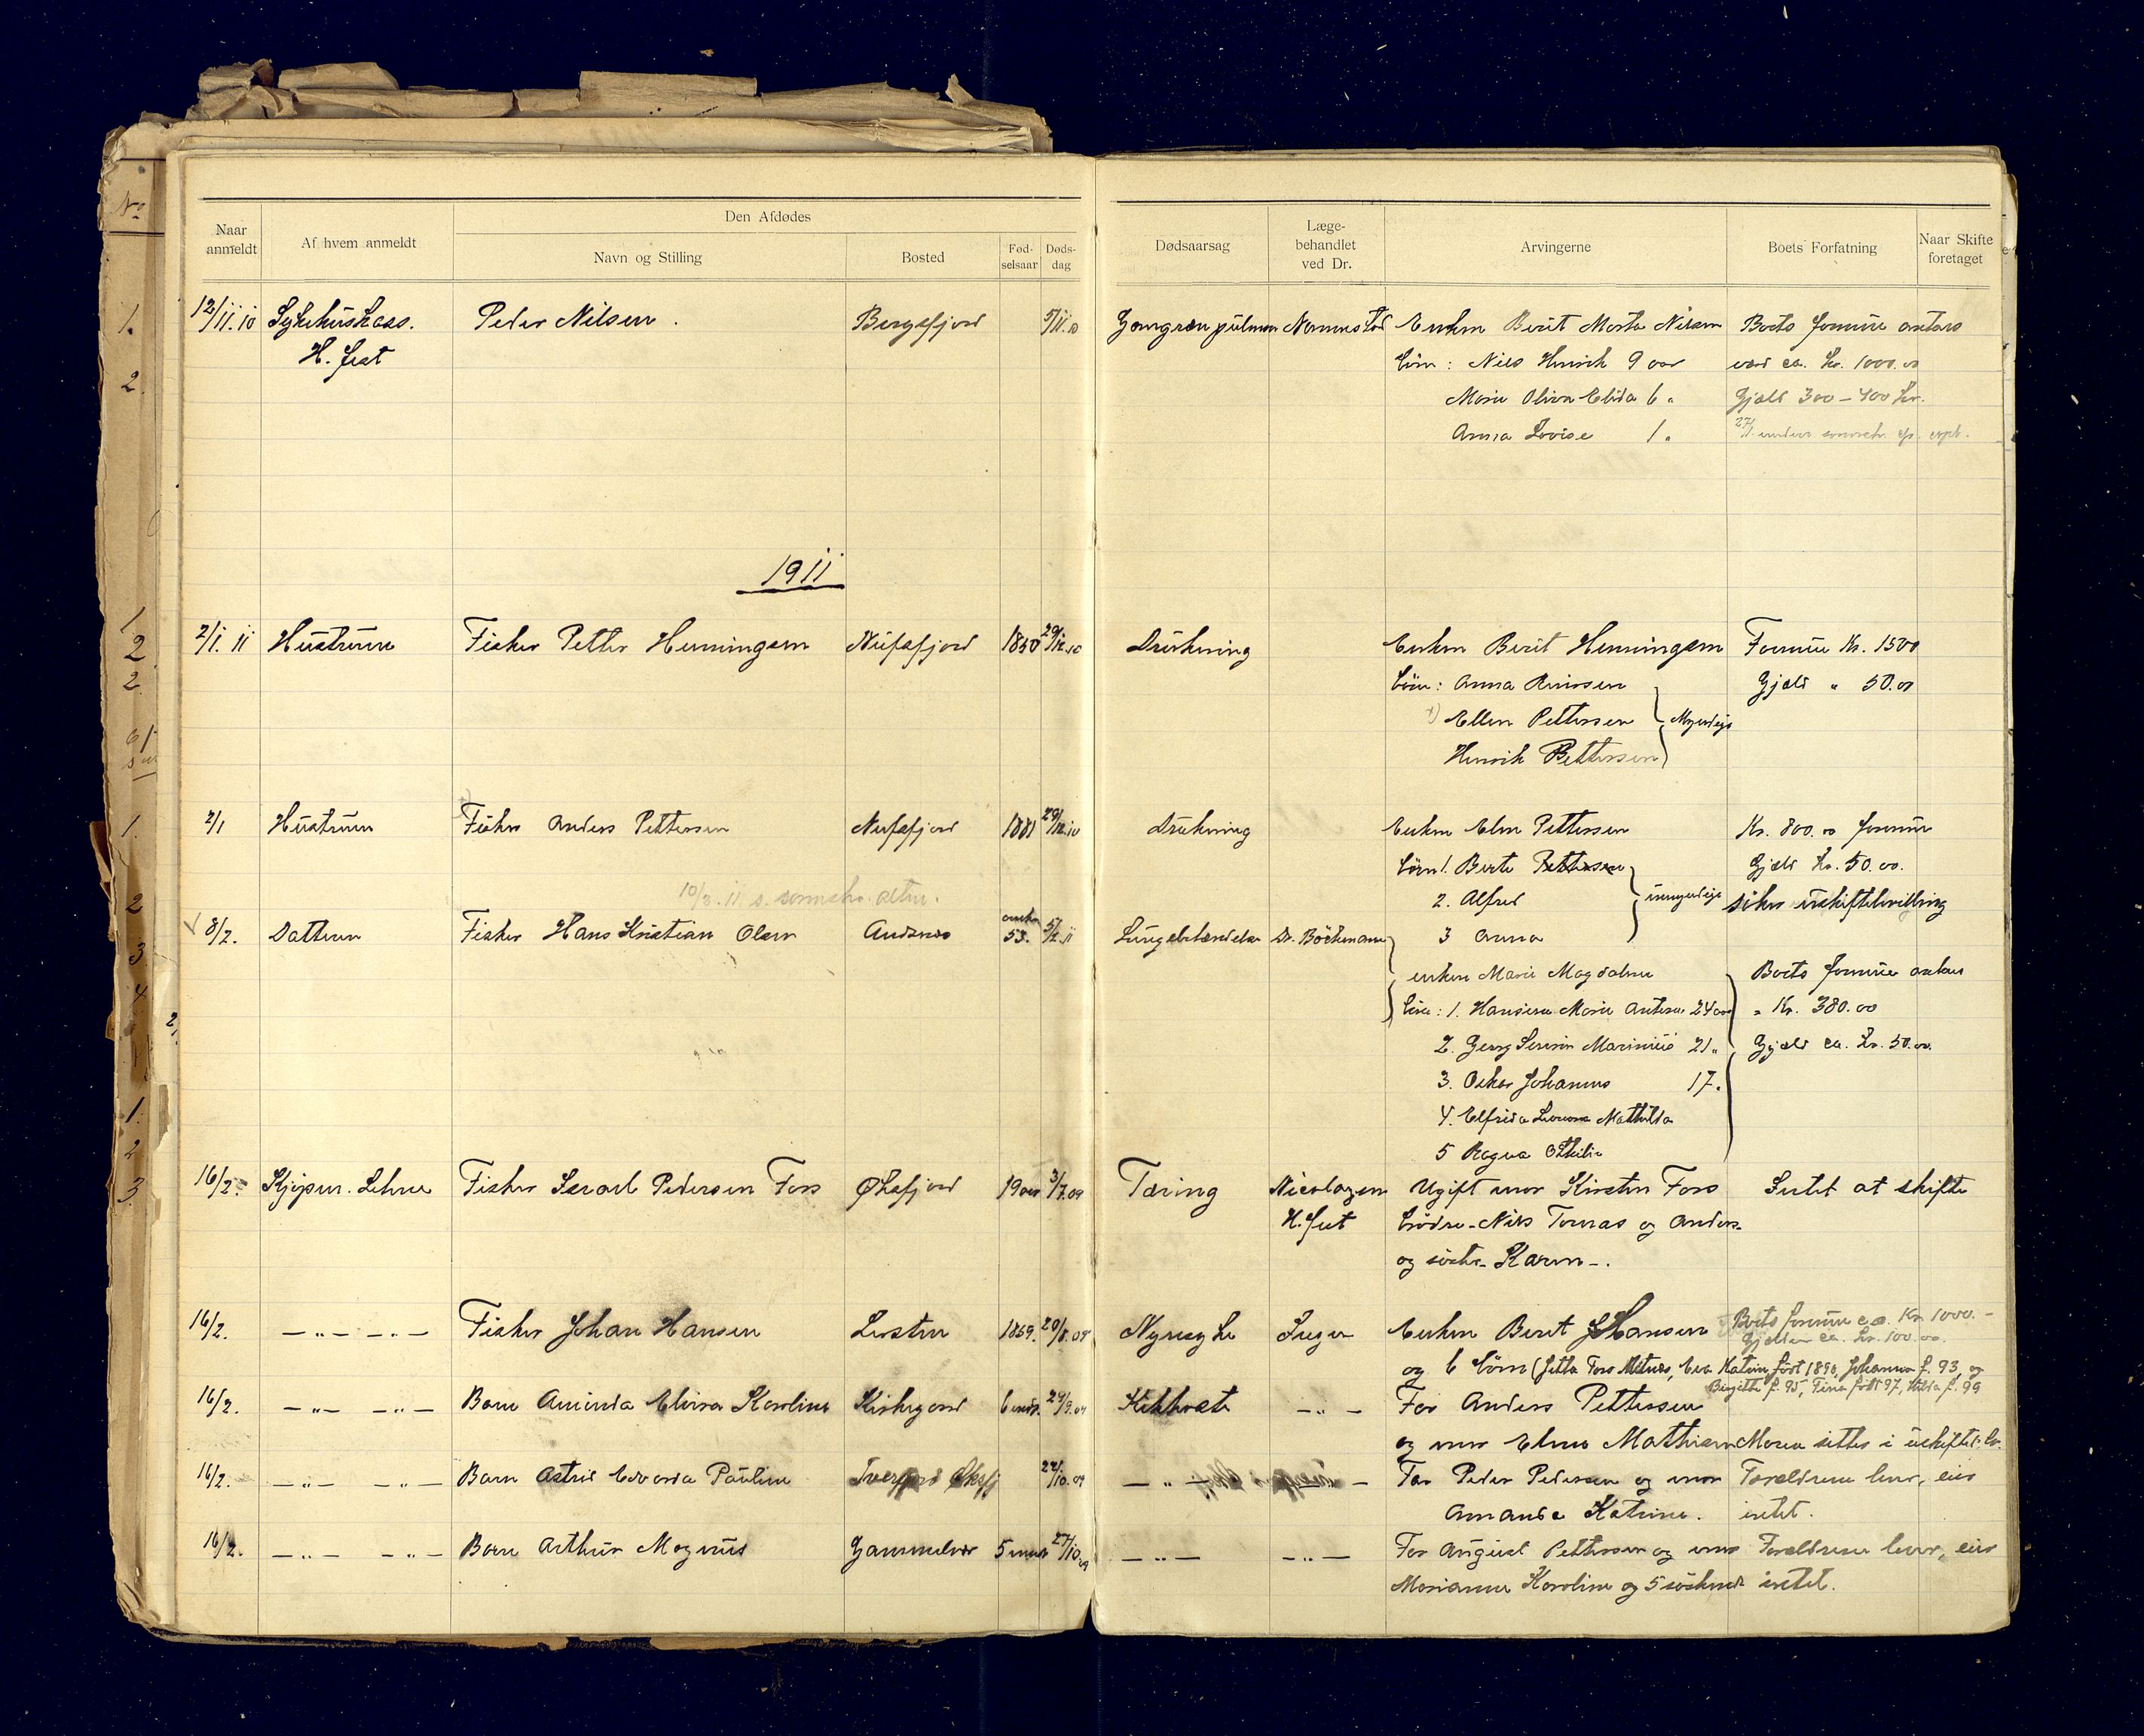 Naar anmeldt
Af hvem anmeldt
Den Afdødes
Navn og Stilling
Bosted
Fød-selsaar
Døds-dag
Dødsaarsag
Læge-behandlet ved Dr.
Arvingerne
Boets Forfatning
Naar Skifte foretaget
12/11.10 Sykehuskass. Peder Nilsen. Bergsfjord 5/11.10 Enken Berit Marta Nilsen Boets formue antas
H.fest Børn: Nils Henrik 9 aar værd ca. kr. 1000.00
Marie Oliva Elida 6 " Gjæld 300-400 kr.
Anna Lovise 1 "
1911
2/1.11 Hustruen Fisker Petter Henningsen Nufsfjord 1850 29/12.10 Drukning Enken Berit Henningsen Formue Kr. 1500
Børn: Anna Gjæld " 50.00
Ellen Pettersen Myndige
Henrik Pettersen
2/1 Hustruen Fisker Anders Pettersen Nufsfjord 1881 29/12.10 Drukning Enken Elen Pettersen Kr. 800.00 formue
Børn 1. Berte Pettersen Gjæld kr. 50.00.
10/2.11
2. Alfred umyndige søker uskiftebevilling
8/2. Datteren Fisker Hans Kristian Olsen Andsnes 53. 5/2.11 Lungebetændelse Dr. Böckmann 3 Anna
enken Marie Magdalene Boets formue antas
Børn: 1. Hansine Marie 24 aar " Kr. 380.00
2. Georg Severin Marinius 21 " Gjæld ca. kr. 50.00.
3. Oskar Johannes 17.
4. Elfrida Mathilda
5 Ragna Othilie
16/2. Fisker Israel Pedersen Fors Øksfjord 19 aar 3/7.09 Tæring Nicolaysen Ugift mor Kirsten Fors Intet at skifte
H.fest brödre - Nils Tomas og Anders -
og söster - Karen -.
16/2. — " — — " — Fisker Johan Hansen 1859. 20/8.09 Enken Berit Hansen Boets formue ca. Kr. 1000.-
Gjælden ca. kr. 100.00.
og 6 börn (Jetta Fors Katrin født 1890, Johanna f. 93, og
Birgitte f. 95, Tina født 97, Hilda f. 99
16/2. — " — — " — Barn Aminda Elvira Karoline Kirkegaard 6 mdr. 24/9.09 Kikhoste — " — Far Anders Pettersen
og mor Elen Mathisen Moren sitter i uskiftet bo.
16/2. — " — — " — Barn Astrid Edvarda Pauline Tverfjord Øksfj 22/10.09 — " — Far Peder Pedersen og mor Forældrene lever, eier
Amanda Katrine. intet.
16/2. — " — — " — Barn Arthur Magnus Gammelvær 27/10.09 — " — — " — Far August Pettersen og mor Forældrene lever, eier
Marianne Karoline og 5 söskende intet.